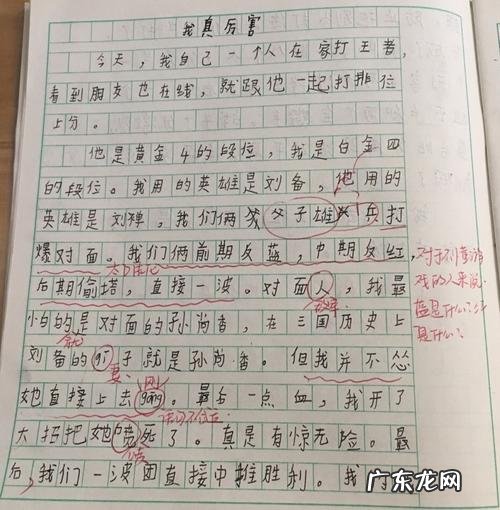 我真厉害
今天，我自己一个人在家打王者，
看到朋友也在线，就跟他一起打排位
上分。
他是黄金4的段位，我是白金四
的段位。我用的英雄是刘备，他用的
英雄是刘禅，我们俩父子雄兵打
爆对面。我们俩前期反蓝，中期反红，
后期偷塔，直接一波。对面人，我最
怕的是对面的孙尚香，在三国历史上
刘备的qī子就是孙尚香。但我并不怂
她直接上去gāng。最后一点血，我开了
大招把她喷死了。真是有惊无险。最
后，我们一波团直接中推胜利。我
对于不懂游
戏的人来说，
蓝是什么？红
是什么？
妻
刚
广东龙网